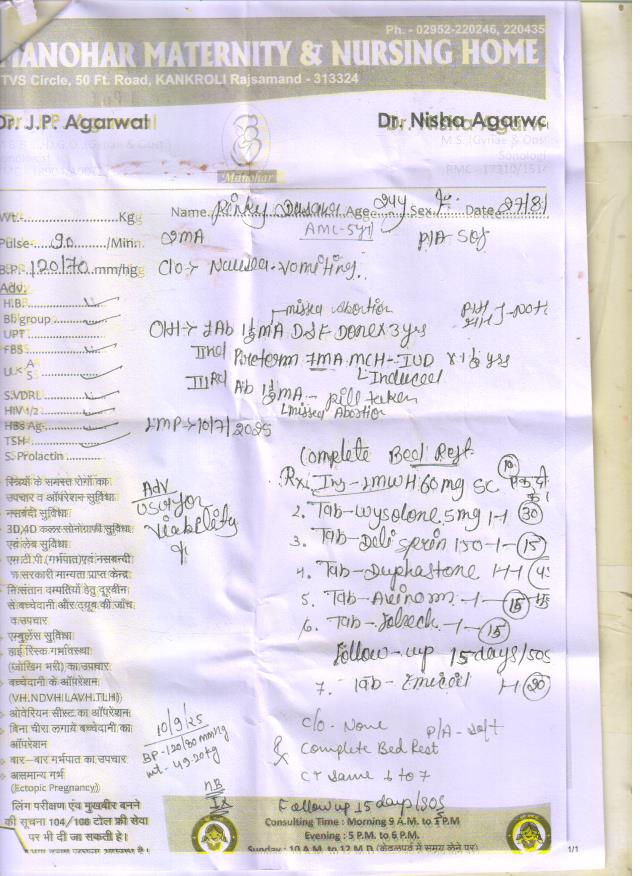 Ph. - 02952-220246, 220435
MANOHAR MATERNITY & NURSING HOME
TVS Circle, 50 Ft. Road, KANKROLI Rajsamand - 313324
Dr. J.P. Agarwal
Dr. Nisha Agarwa
M.S. (Gynae &
Sonologi
RMC - 17310/151
Manohar
Wt. Kg
Name Pinky Age 24y Sex F. Date 27/8/
Pulse- 90 /Min.
2MA
AMC-5y1
P/A - Soft
B.P. 120/70 mm/hg
C/o -> Nausea - vomiting.
Adv:
H.B.
Bl group
UPT
FBS
U.K A
S
S.VDRL
HIV 1/2
HBs Ag
TSH
S. Prolactin
missed Abortion
O/H -> I Ab 1½MA D&E Done x 3 yrs
IInd Preterm 7MA MCH - IUD x 1½ yrs
Induced
IIIrd Ab 1½MA - pill taken
missed Abortion
LMP -> 10/7/2025
Complete Bed Rest
Rx. Inj - LMWH 60 mg SC 10
2. Tab - Wysolone 5mg 1-1 30
3. Tab - Deli sprin 150 -1- 15
4. Tab - Duphastone 1-1
5. Tab - -1- 15
6. Tab - -1- 15
Follow-up 15 days/SOS
7. Tab - 1-1 30
Adv
USG for
Viability
स्त्रियों के समस्त रोगों का
उपचार व ऑपरेशन सुविधा
नसबंदी सुविधा
3D,4D कलर सोनोग्राफी सुविधा
एवं लेब सुविधा
एम.टी.पी. (गर्भपात) एवं नसबन्दी
का सरकारी मान्यता प्राप्त केन्द्र
निःसंतान दम्पतियों हेतु दूरबीन
से बच्चेदानी और ट्यूब की जाँच
व उपचार
एम्बुलेंस सुविधा
हाई रिस्क गर्भावस्था
(जोखिम भरी) का उपचार
बच्चेदानी के ऑपरेशन
(VH.NDVH.LAVH.TLH)
ओवेरियन सीस्ट का ऑपरेशन
बिना चीरा लगाये बच्चेदानी का
ऑपरेशन
बार-बार गर्भपात का उपचार
असमान्य गर्भ
(Ectopic Pregnancy)
लिंग परीक्षण एवं मुखबीर बनने
की सूचना 104/108 टोल फ्री सेवा
पर भी दी जा सकती है।
10/9/25
BP - 120/80 mmHg
wt - 49.20kg
C/o - None P/A - soft
Complete Bed Rest
CT same 1 to 7
Follow up 15 days/SOS
Consulting Time : Morning 9 A.M. to 1 P.M
Evening : 5 P.M. to 6 P.M.
Sunday : 10 A.M. to 12 M.D. (केवल पर्व में समय लेने पर)
1/1